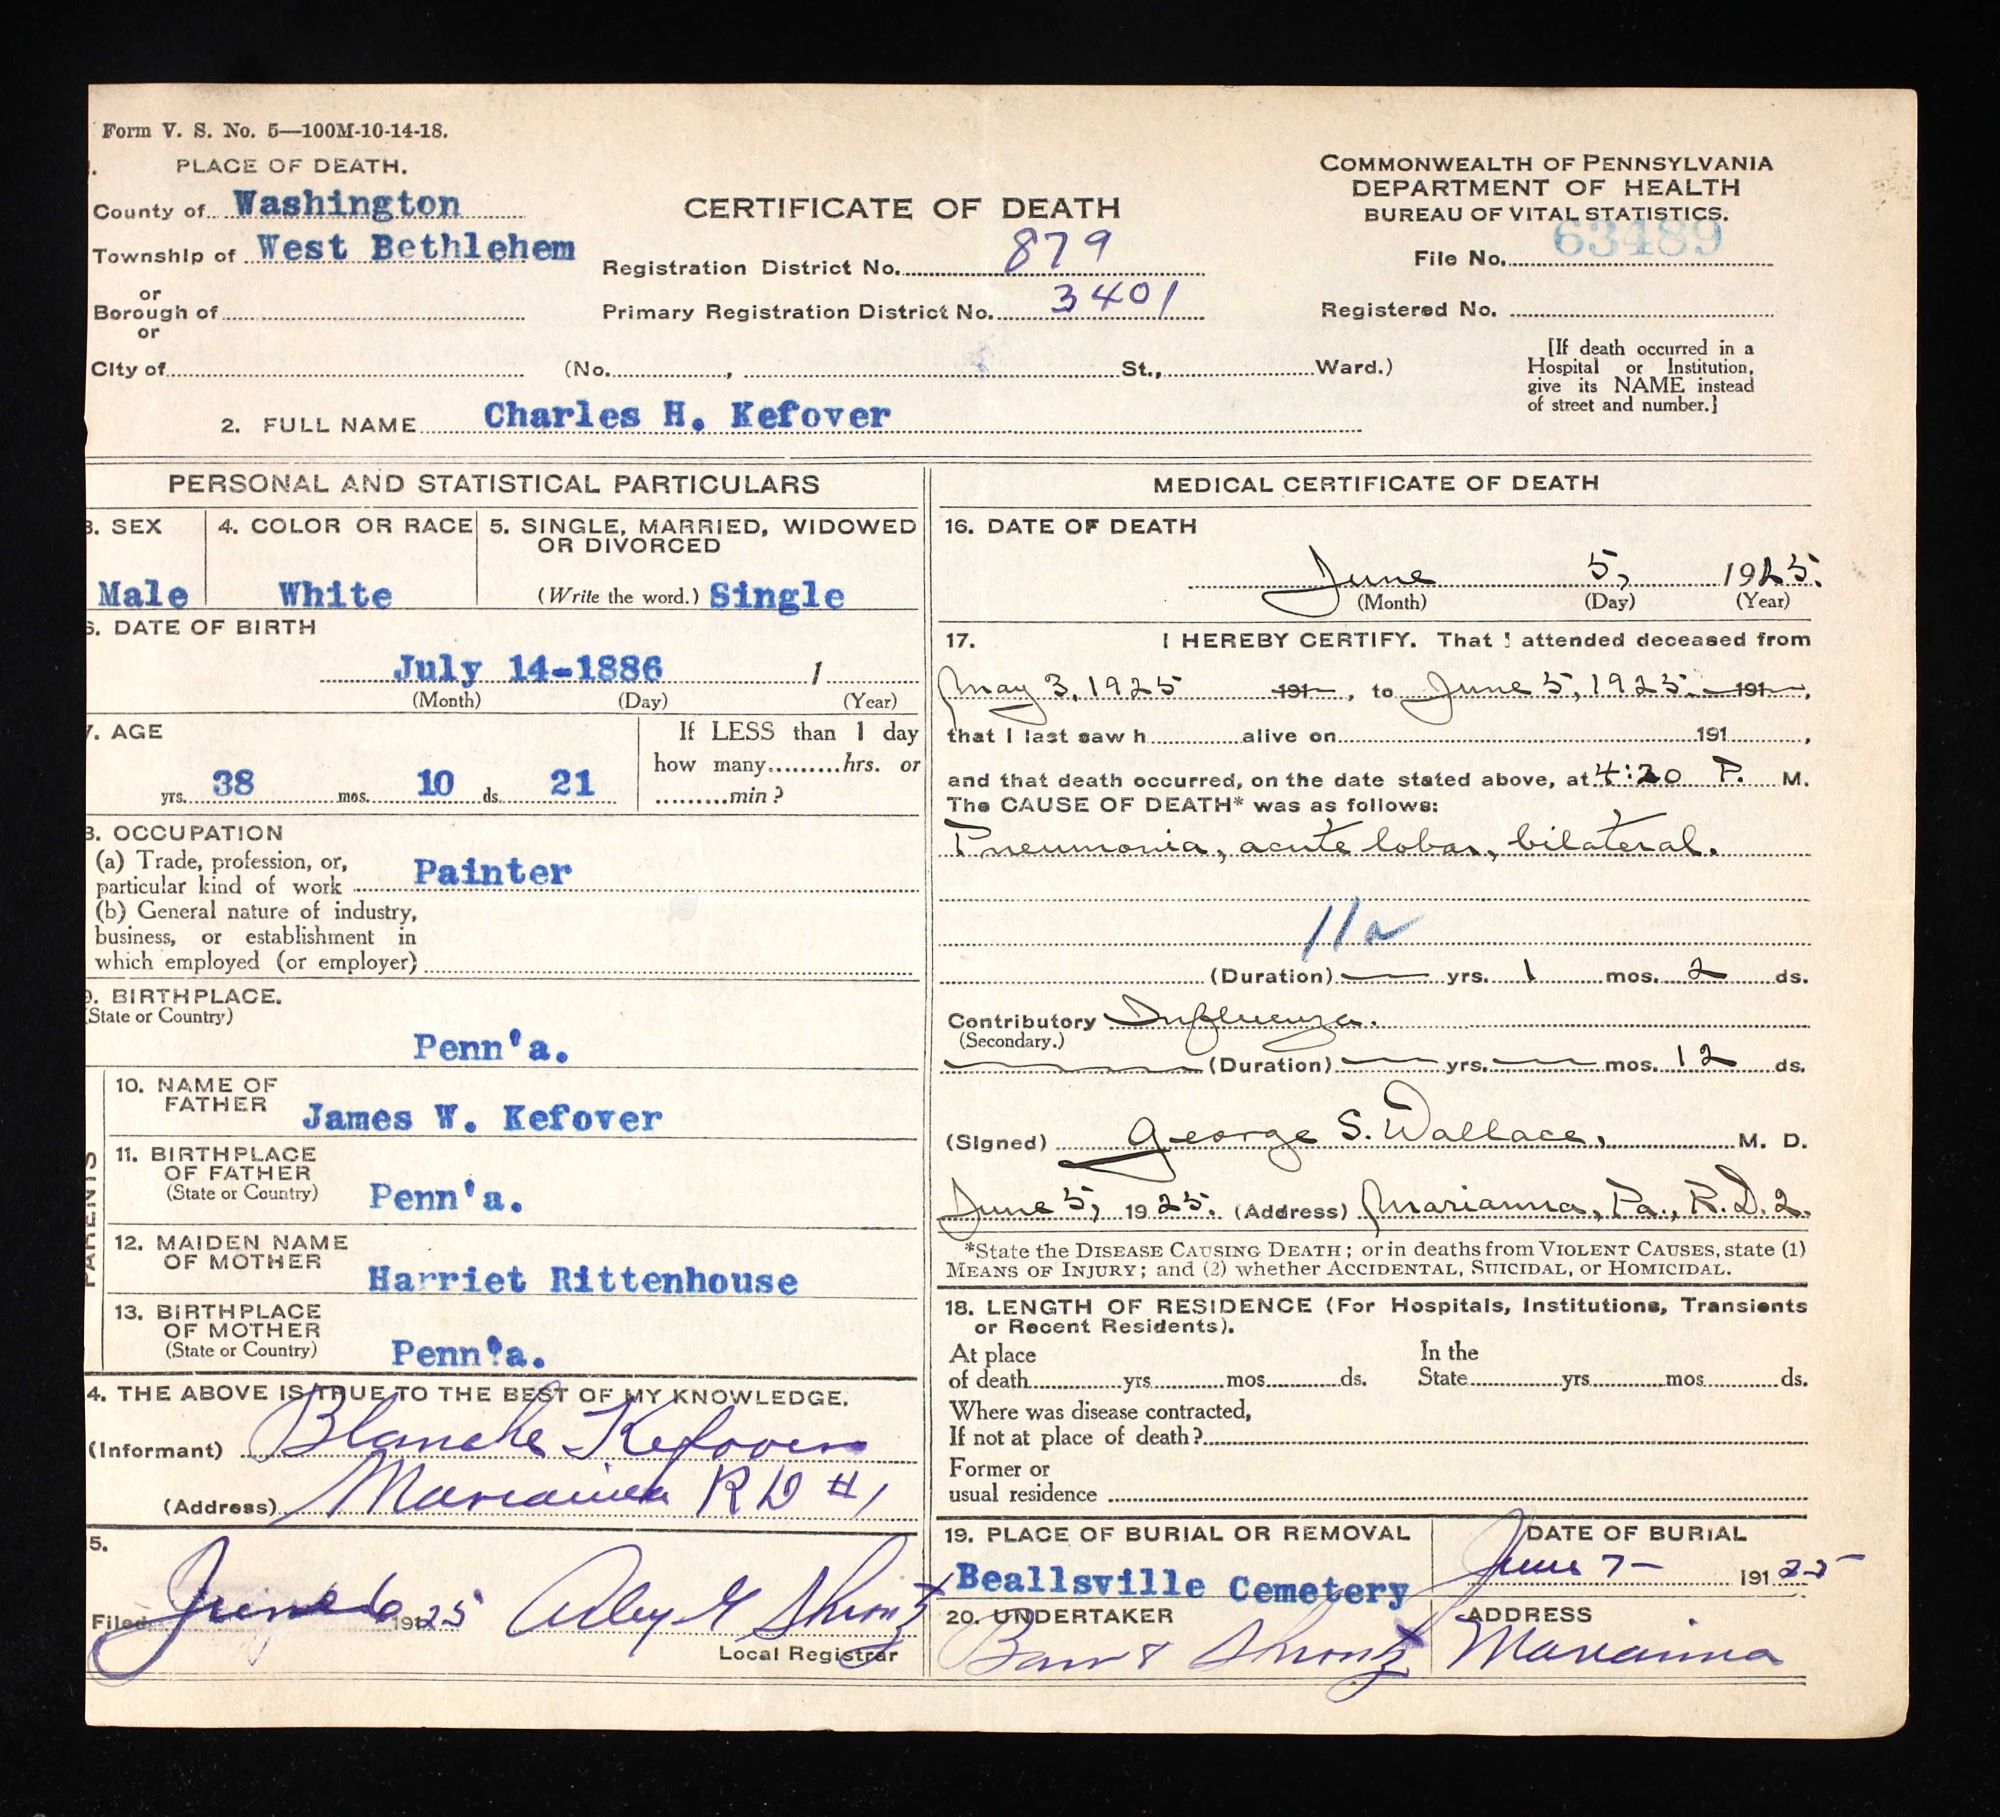 Form V. S. No. 5—100M-10-14-18.
PLACE OF DEATH.
County of Washington
Township of West Bethlehem
or
Borough of
or
City of
CERTIFICATE OF DEATH
Registration District No. 879
Primary Registration District No. 3401
(No. , St., Ward.)
COMMONWEALTH OF PENNSYLVANIA
DEPARTMENT OF HEALTH
BUREAU OF VITAL STATISTICS.
File No. 63489
Registered No.
[If death occurred in a
Hospital or Institution,
give its NAME instead
of street and number.]
2. FULL NAME Charles H. Kefover
PERSONAL AND STATISTICAL PARTICULARS
3. SEX
Male
4. COLOR OR RACE
White
5. SINGLE, MARRIED, WIDOWED
OR DIVORCED
(Write the word.) Single
6. DATE OF BIRTH
July 14-1886 1
(Month) (Day) (Year)
7. AGE
yrs. 38 mos. 10 ds. 21
If LESS than 1 day
how many.........hrs. or
.........min?
8. OCCUPATION
(a) Trade, profession, or,
particular kind of work Painter
(b) General nature of industry,
business, or establishment in
which employed (or employer)
9. BIRTHPLACE.
(State or Country)
Penn'a.
PARENTS
10. NAME OF
FATHER James W. Kefover
11. BIRTHPLACE
OF FATHER
(State or Country) Penn'a.
12. MAIDEN NAME
OF MOTHER
Harriet Rittenhouse
13. BIRTHPLACE
OF MOTHER
(State or Country) Penn'a.
4. THE ABOVE IS TRUE TO THE BEST OF MY KNOWLEDGE.
(Informant) Blanche Kefover
(Address) Marianna R D #1
5.
Filed June 6 191 25 Shrontz
Local Registrar
MEDICAL CERTIFICATE OF DEATH
16. DATE OF DEATH
June 5, 1925.
(Month) (Day) (Year)
17. I HEREBY CERTIFY. That I attended deceased from
May 3, 1925 191 , to June 5, 1925. 191 ,
that I last saw h alive on 191 ,
and that death occurred, on the date stated above, at 4:20 P. M.
The CAUSE OF DEATH* was as follows:
Pneumonia, acute lobar, bilateral.
11a
(Duration) — yrs. 1 mos. 2 ds.
Contributory Influenza.
(Secondary.)
(Duration) — yrs. — mos. 12 ds.
(Signed) George S. Wallace, M. D.
June 5, 1925. (Address) Marianna, Pa., R.D.2.
*State the DISEASE CAUSING DEATH; or in deaths from VIOLENT CAUSES, state (1)
MEANS OF INJURY; and (2) whether ACCIDENTAL, SUICIDAL, or HOMICIDAL.
18. LENGTH OF RESIDENCE (For Hospitals, Institutions, Transients
or Recent Residents).
At place
of death yrs mos ds.
In the
State yrs mos ds.
Where was disease contracted,
If not at place of death?
Former or
usual residence
19. PLACE OF BURIAL OR REMOVAL
Beallsville Cemetery
DATE OF BURIAL
June 7- 191 25
20. UNDERTAKER
Barr & Shrontz
ADDRESS
Marianna